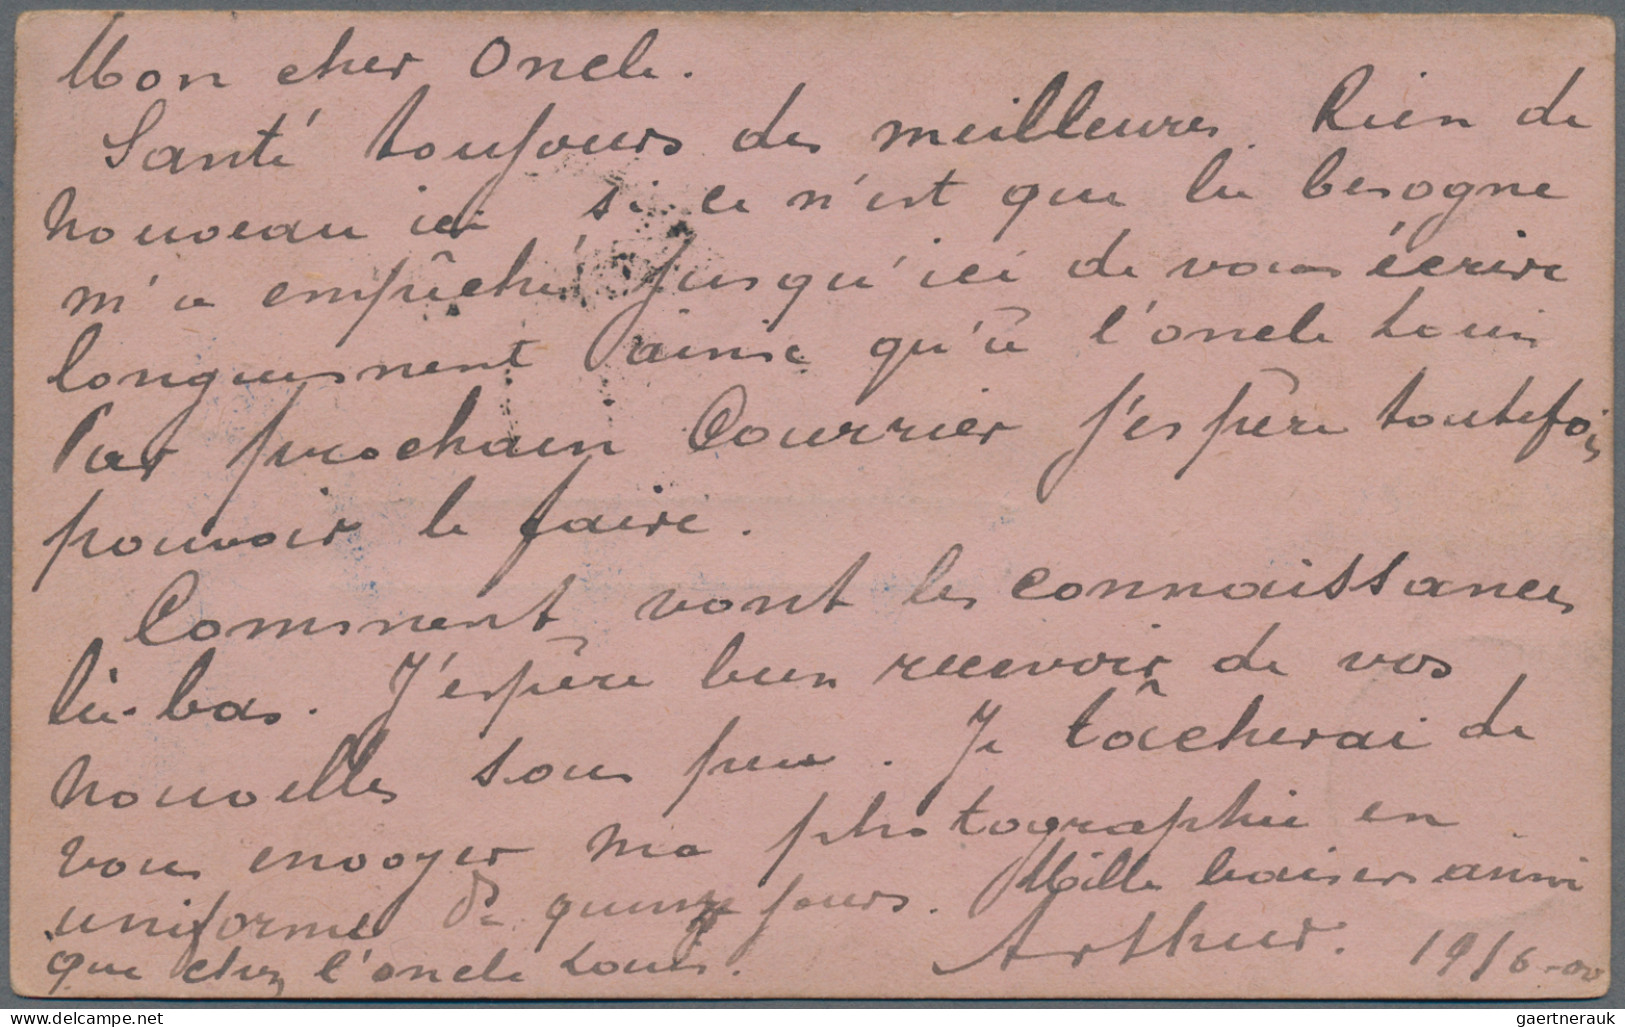 Mon cher Oncle.
Santé toujours des meilleures. Rien de
nouveau ici si ce n'est que la besogne
m'a empêché jusqu'ici de vous écrire
longuement ainsi qu'à l'oncle Louis
Par prochain Courrier j'espère toutefois
pouvoir le faire.
Comment vont les connaissances
là-bas. J'espère bien recevoir de vos
nouvelles sous peu. Je tâcherai de
vous envoyer ma photographie en
uniforme quinze jours. Mille baisers ainsi
que chez l'oncle Louis. Arthur. 19/6-00
delcampe.net
gaertnerauk